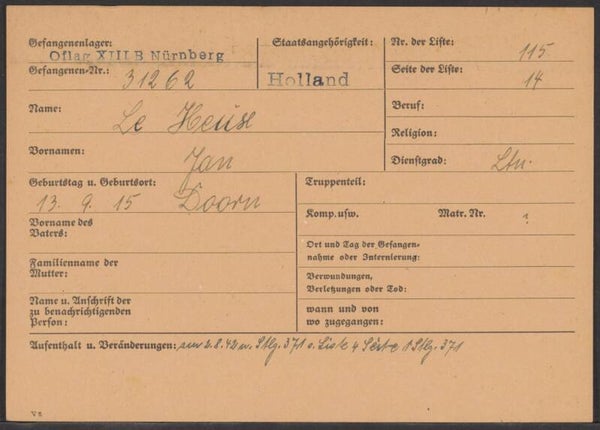 Gefangenenlager:
Oflag XIII B Nürnberg
Gefangenen-Nr.: 31262
Staatsangehörigkeit:
Holland
Nr. der Liste: 115
Seite der Liste: 14
Name: Le Heuse
Beruf:
Religion:
Vornamen: Jan
Dienstgrad: Ltn.
Geburtstag u. Geburtsort:
13. 9. 15 Doorn
Truppenteil:
Komp. usw. Matr. Nr. ?
Vorname des
Vaters:
Ort und Tag der Gefangen-
nahme oder Internierung:
Familienname der
Mutter:
Verwundungen,
Verletzungen oder Tod:
Name u. Anschrift der
zu benachrichtigenden
Person:
wann und von
wo zugegangen:
Aufenthalt u. Veränderungen: am 2.8.42 n. Stlg. 371 s. Liste 4 Seite 1 Stlg. 371